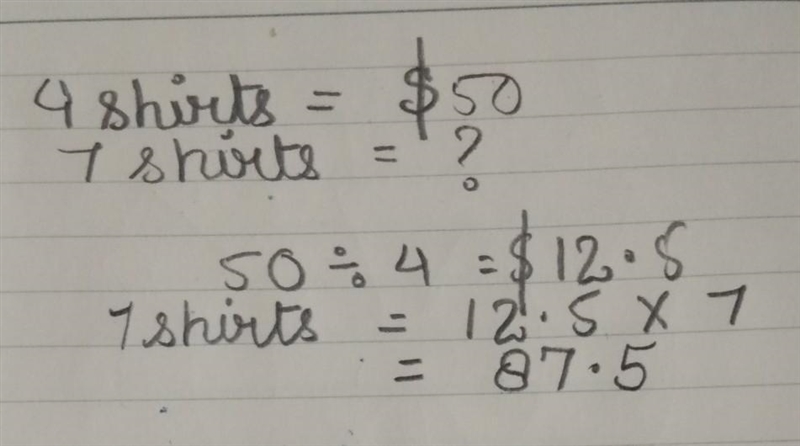 4 shirts = $50
7 shirts = ?
50 ÷ 4 = $12.5
7 shirts = 12.5 x 7
= 87.5